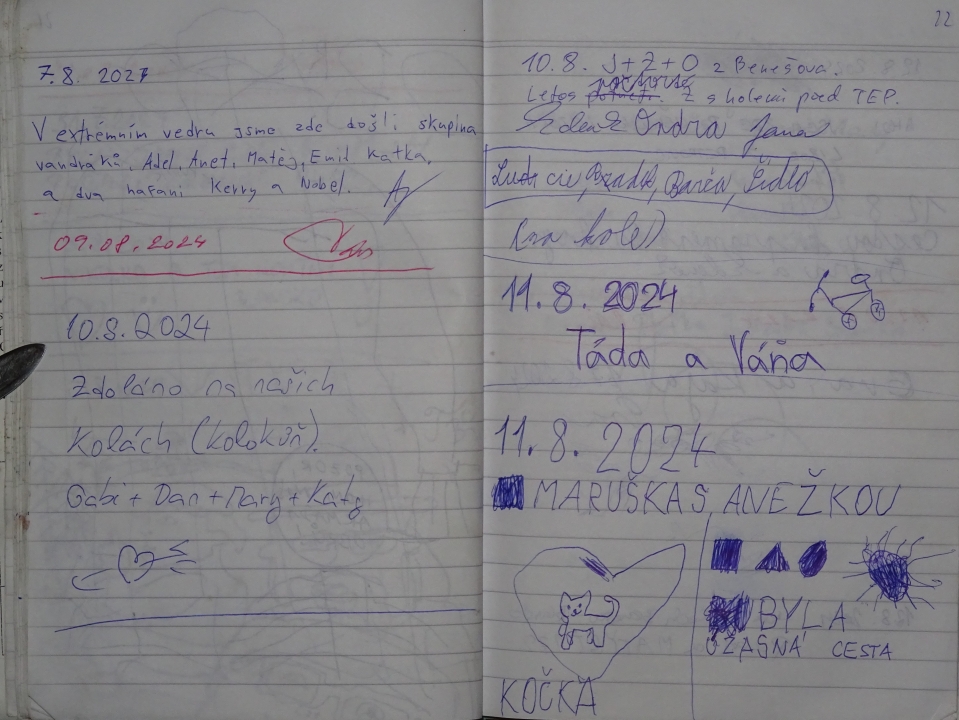 7.8. 2024
V extrémním vedru jsme zde došli skupina
vandráků, Adel, Anet, Matěj, Emil Katka,
a dva hafani Kerry a Nobel.
09.08.2024
10.8.2024
Zdoláno na našich
Kolách (kolokúň).
Gabi + Dan + Mary + Katy
22
10.8. J+Z+O z Benešova.
Letos Z s holemi před TEP.
Zdeněk Ondra Jana
Barča, Šídlo
(na kole)
11.8. 2024
Táda a Váňa
11.8. 2024
MARUŠKA S ANEŽKOU
BYLA
ÚŽASNÁ CESTA
KOČKA